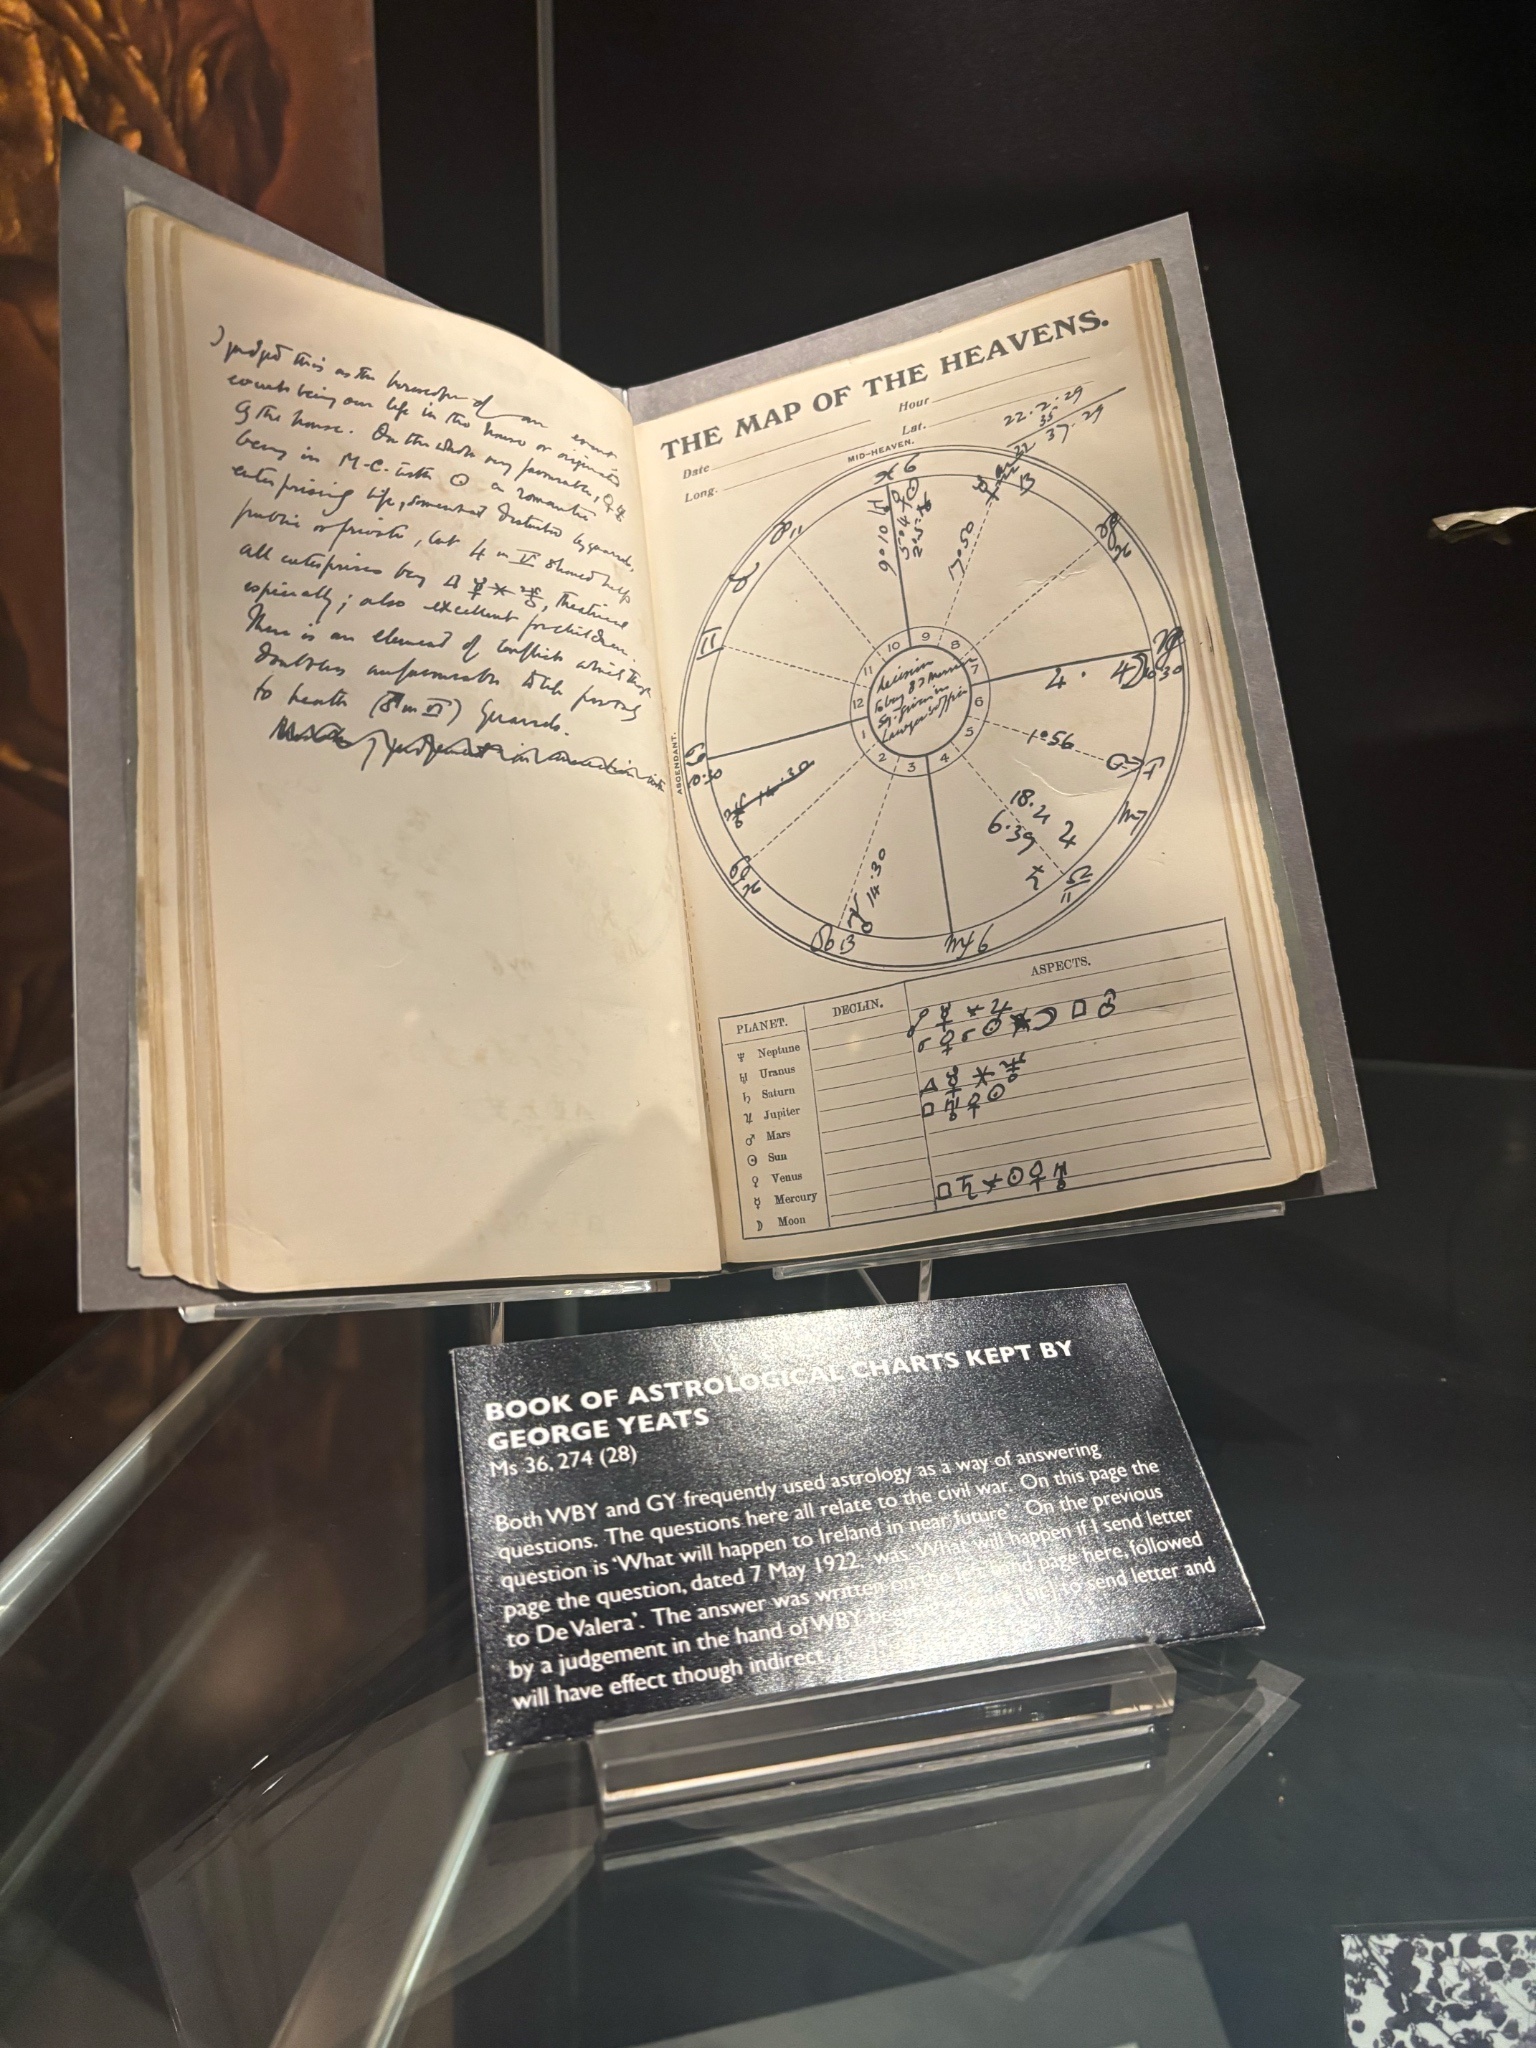 I judged this as the horoscope of an event
events being our life in the house or originated
by the house. On the whole very favourable, ♀ ♅
being in M.C. with ☉ a romantic
enterprising life, somewhat disturbed by quarrels,
public or private, but ♃ in V should help
all enterprises being △ ☿ ⚹ ♆, theatrical
especially; also excellent for children.
There is an element of conflict which
doubtless unfavourable
to health (♂ in II) Quarrels.
THE MAP OF THE HEAVENS.
Date
Hour
Long.
Lat.
22.2.29
35
22.37.29
MID-HEAVEN.
ASCENDANT.
♓ 6
♉ 11
♊
9.10
5.4
7.50
13
26
4.
1.56
18.2
6.39
♃
♄
♎
11
♍ 6
♌ 13
14.30
14.30
♋
26
10 9 8 7 6 5 4 3 2 1 12 11
decision
to buy 82 Merrion
Sq. given in
lawyer's office
PLANET. DECLIN. ASPECTS.
♆ Neptune ☍ ☿ ⚹ ♃
♅ Uranus ☌ ♀ ☌ ☉ ⚹ ☽ □ ♂
♄ Saturn
♃ Jupiter △ ☿ ⚹ ♆
♂ Mars □ ♅ ♀ ☉
☉ Sun
♀ Venus
☿ Mercury
☽ Moon □ ♄ ⚹ ☉ ♀ ♅
BOOK OF ASTROLOGICAL CHARTS KEPT BY
GEORGE YEATS
Ms 36, 274 (28)
Both WBY and GY frequently used astrology as a way of answering
questions. The questions here all relate to the civil war. On this page the
question is 'What will happen to Ireland in near future'. On the previous
page the question, dated 7 May 1922 was 'What will happen if I send letter
to De Valera'. The answer was written on the left hand page here, followed
by a judgement in the hand of WBY to send letter and
will have effect though indirect